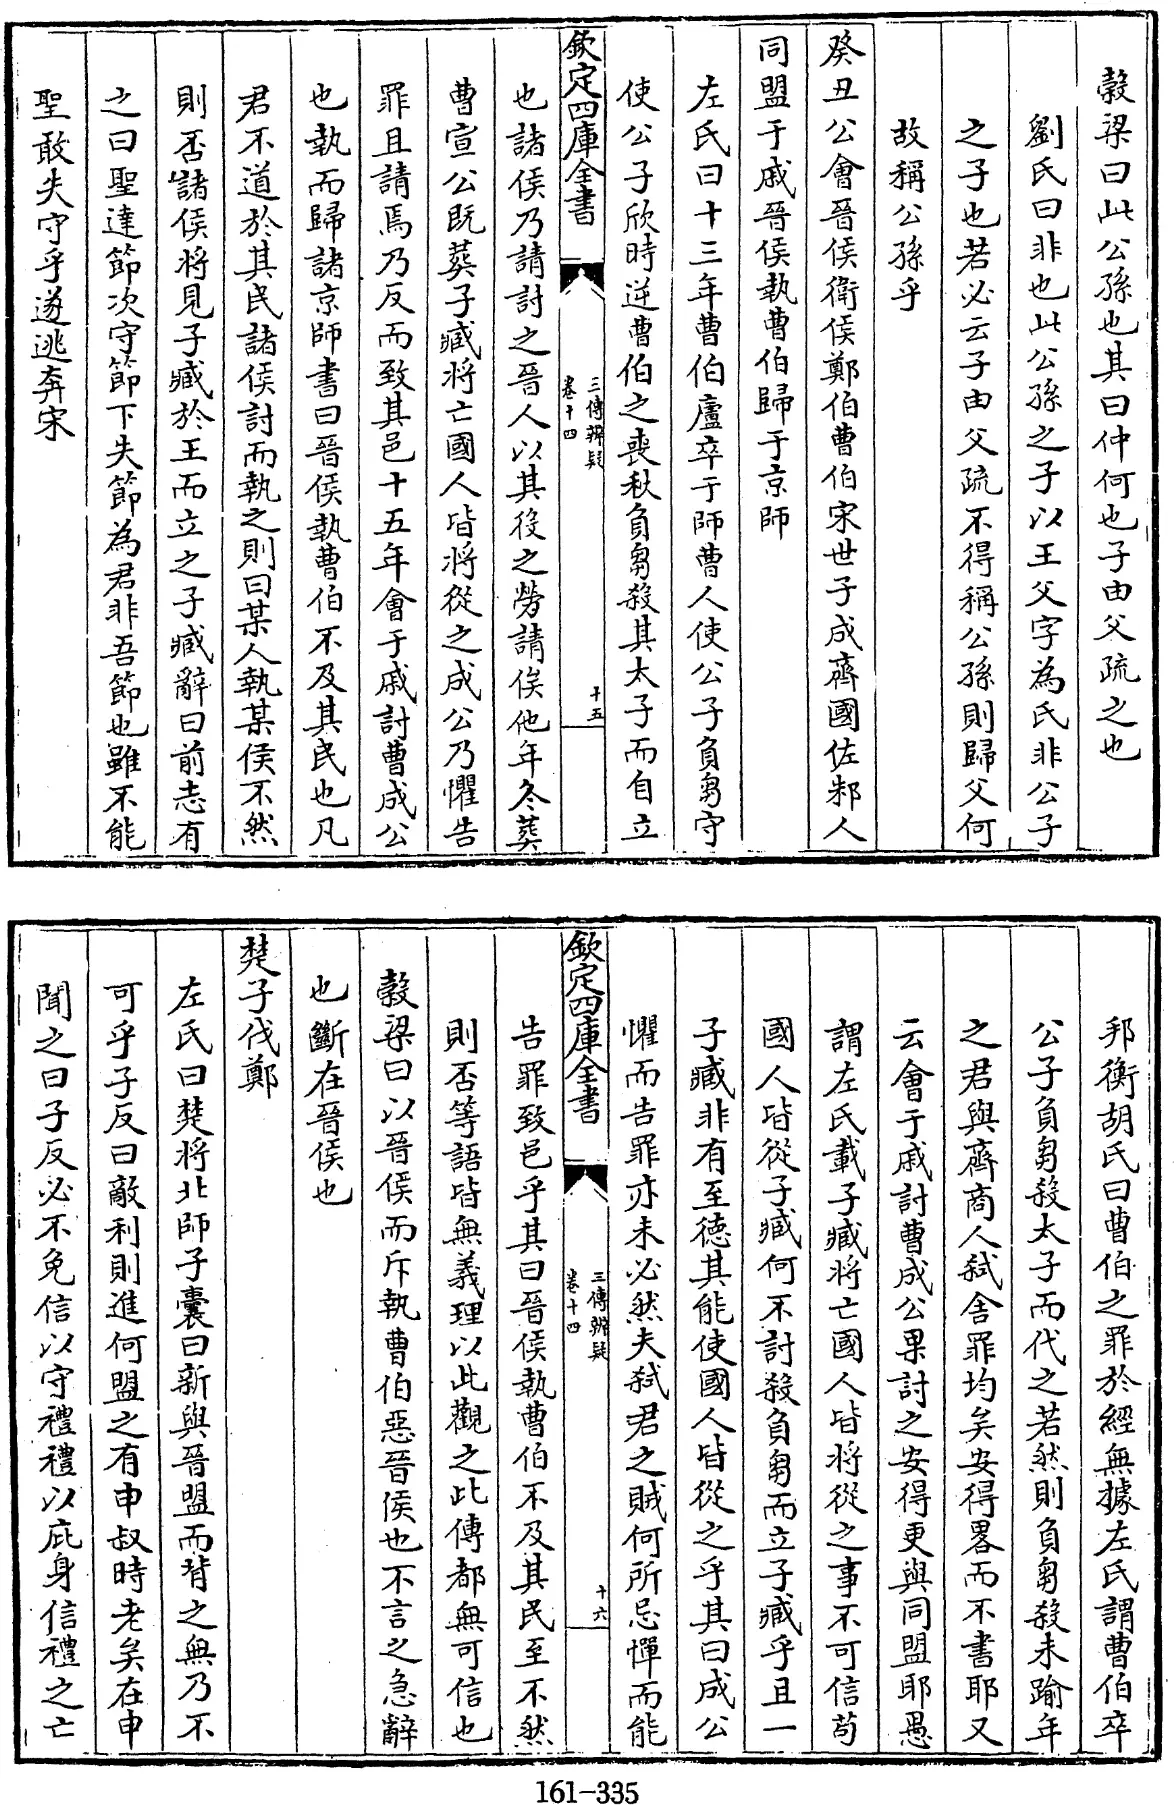 穀梁曰此公孫也其曰仲何也子由父疏之也
劉氏曰非也此公孫之子以王父字為氏非公子
之子也若必云子由父疏不得稱公孫則歸父何
故稱公孫乎
癸丑公會晉侯衛侯鄭伯曹伯宋世子成齊國佐邾人
同盟于戚晉侯執曹伯歸于京師
左氏曰十三年曹伯廬卒于師曹人使公子負芻守
使公子欣時逆曹伯之喪秋負芻殺其太子而自立
欽定四庫全書
三傳辨疑
卷十四
十五
也諸侯乃請討之晉人以其役之勞請俟他年冬葬
曹宣公既葬子臧將亡國人皆將從之成公乃懼告
罪且請焉乃反而致其邑十五年會于戚討曹成公
也執而歸諸京師書曰晉侯執曹伯不及其民也凡
君不道於其民諸侯討而執之則曰某人執某侯不然
則否諸侯將見子臧於王而立之子臧辭曰前志有
之曰聖達節次守節下失節為君非吾節也雖不能
聖敢失守乎遂逃奔宋
邦衡胡氏曰曹伯之罪於經無據左氏謂曹伯卒
公子負芻殺太子而代之若然則負芻殺未踰年
之君與齊商人弒舍罪均矣安得畧而不書耶又
云會于戚討曹成公果討之安得更與同盟耶愚
謂左氏載子臧將亡國人皆將從之事不可信茍
國人皆從子臧何不討殺負芻而立子臧乎且一
子臧非有至德其能使國人皆從之乎其曰成公
懼而告罪亦未必然夫弒君之賊何所忌憚而能
欽定四庫全書
三傳辨疑
卷十四
十六
告罪致邑乎其曰晉侯執曹伯不及其民至不然
則否等語皆無義理以此觀之此傳都無可信也
穀梁曰以晉侯而斥執曹伯惡晉侯也不言之急辭
也斷在晉侯也
楚子伐鄭
左氏曰楚將北師子囊曰新與晉盟而背之無乃不
可乎子反曰敵利則進何盟之有申叔時老矣在申
聞之曰子反必不免信以守禮禮以庇身信禮之亡
161-335